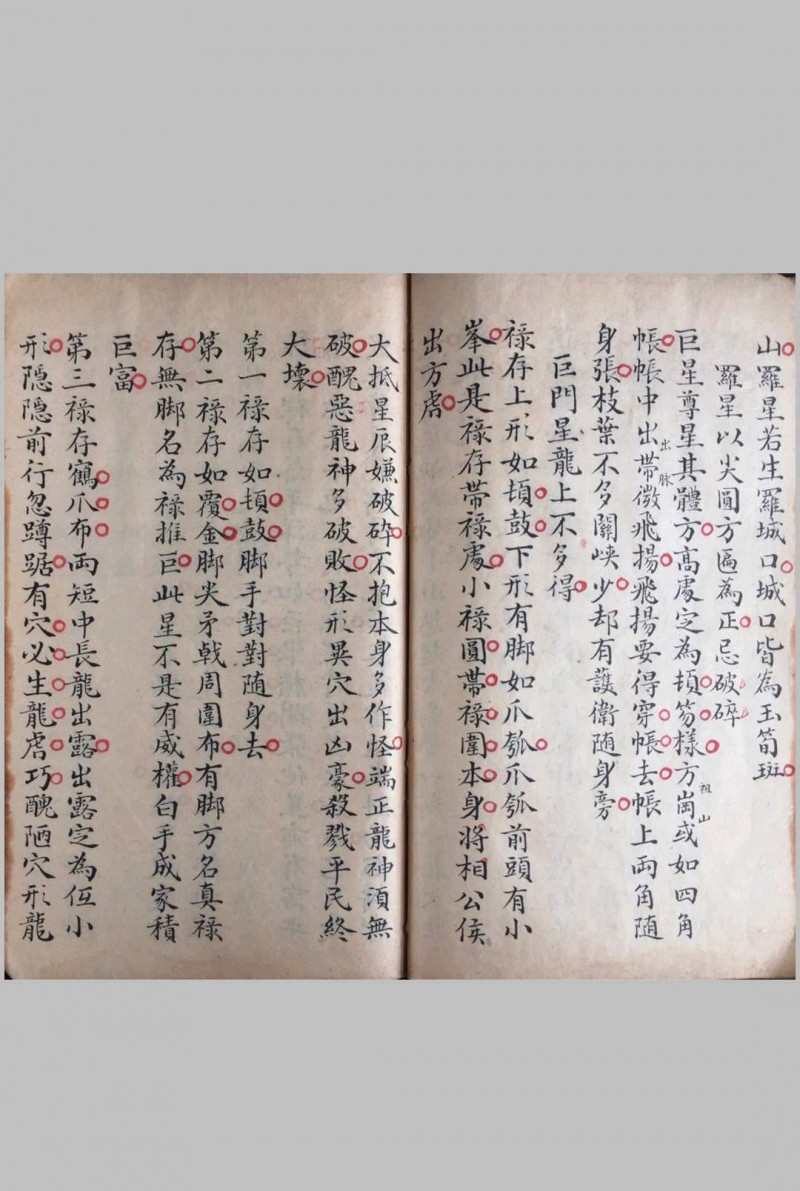 山羅星若生羅城口城口皆為玉筍班
羅星以尖圓方匾為正忌破碎
巨星尊星其體方高處定為頓笏樣方崗或如四角
祖山
帳帳中出帶微飛揚飛揚要得穿帳去帳上両角隨
出脉
身張枝葉不多關峽少却有護衛随身旁
巨門星龍上不多得
禄存上形如頓鼓下形有脚如爪瓠爪瓠前頭有小
峯此是禄存帯禄處小禄圓帯禄圍本身将相公侯
出方虐
大抵星辰嫌破碎不抱本身多作怪端正龍神須無
破醜惡龍神多破敗怪形異穴出凶豪殺戮平民終
大壞
第一禄存如頓鼓脚手對對随身去
第二禄存如覆金脚尖矛戟周圍布有脚方名真禄
存無脚名為禄推巨此星不是有威權白手成家積
巨富
第三禄存鶴爪布両短中長龍出露出露定為伍小
形隠隠前行忽蹲踞有穴必生龍虐巧醜陋穴形龍